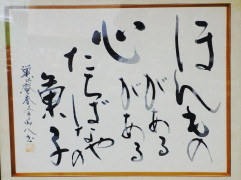 ほんもの
がある
心
がある
たちばなやの
菓子